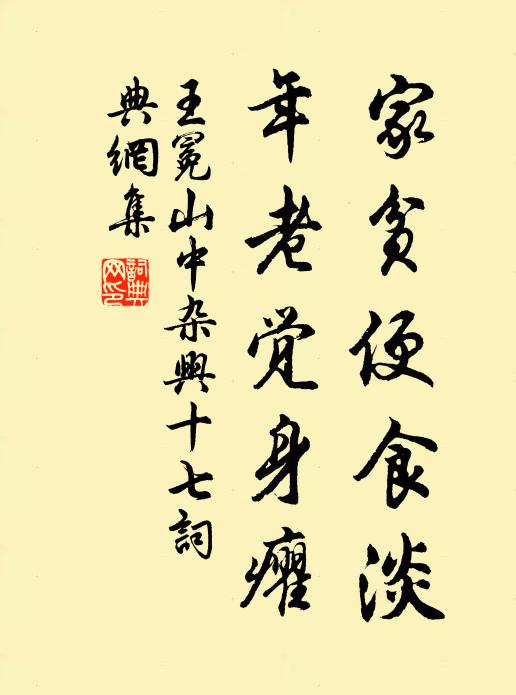 家貧便食淡
年老覚身癯
王冕山中杂興十七詞
典網集
詞典
网印